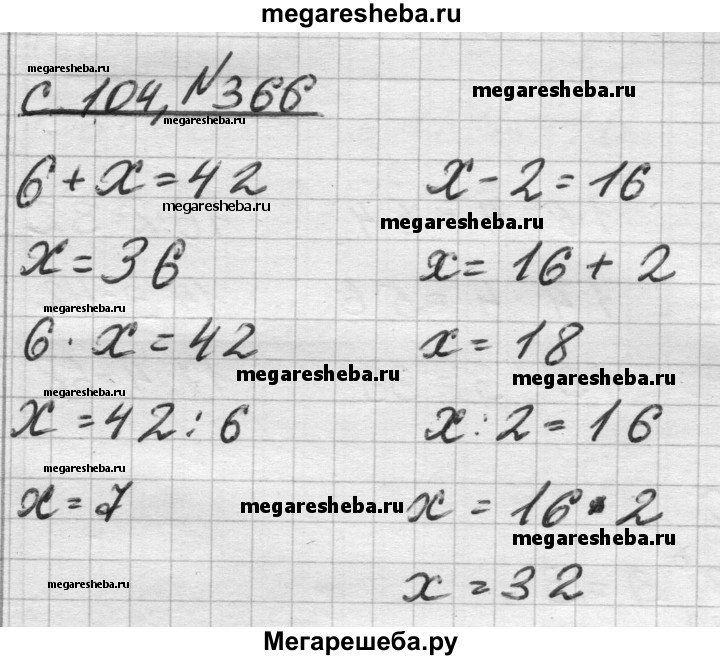 megaresheba.ru
megaresheba.ru
с. 104, №366
megaresheba.ru
megaresheba.ru
6 + х = 42
megaresheba.ru
х = 36
megaresheba.ru
6 · х = 42
megaresheba.ru
х = 42 : 6
megaresheba.ru
х = 7
megaresheba.ru
megaresheba.ru
х - 2 = 16
megaresheba.ru
х = 16 + 2
х = 18
megaresheba.ru
х : 2 = 16
х = 16 · 2
megaresheba.ru
х = 32
Мегарешеба.ру